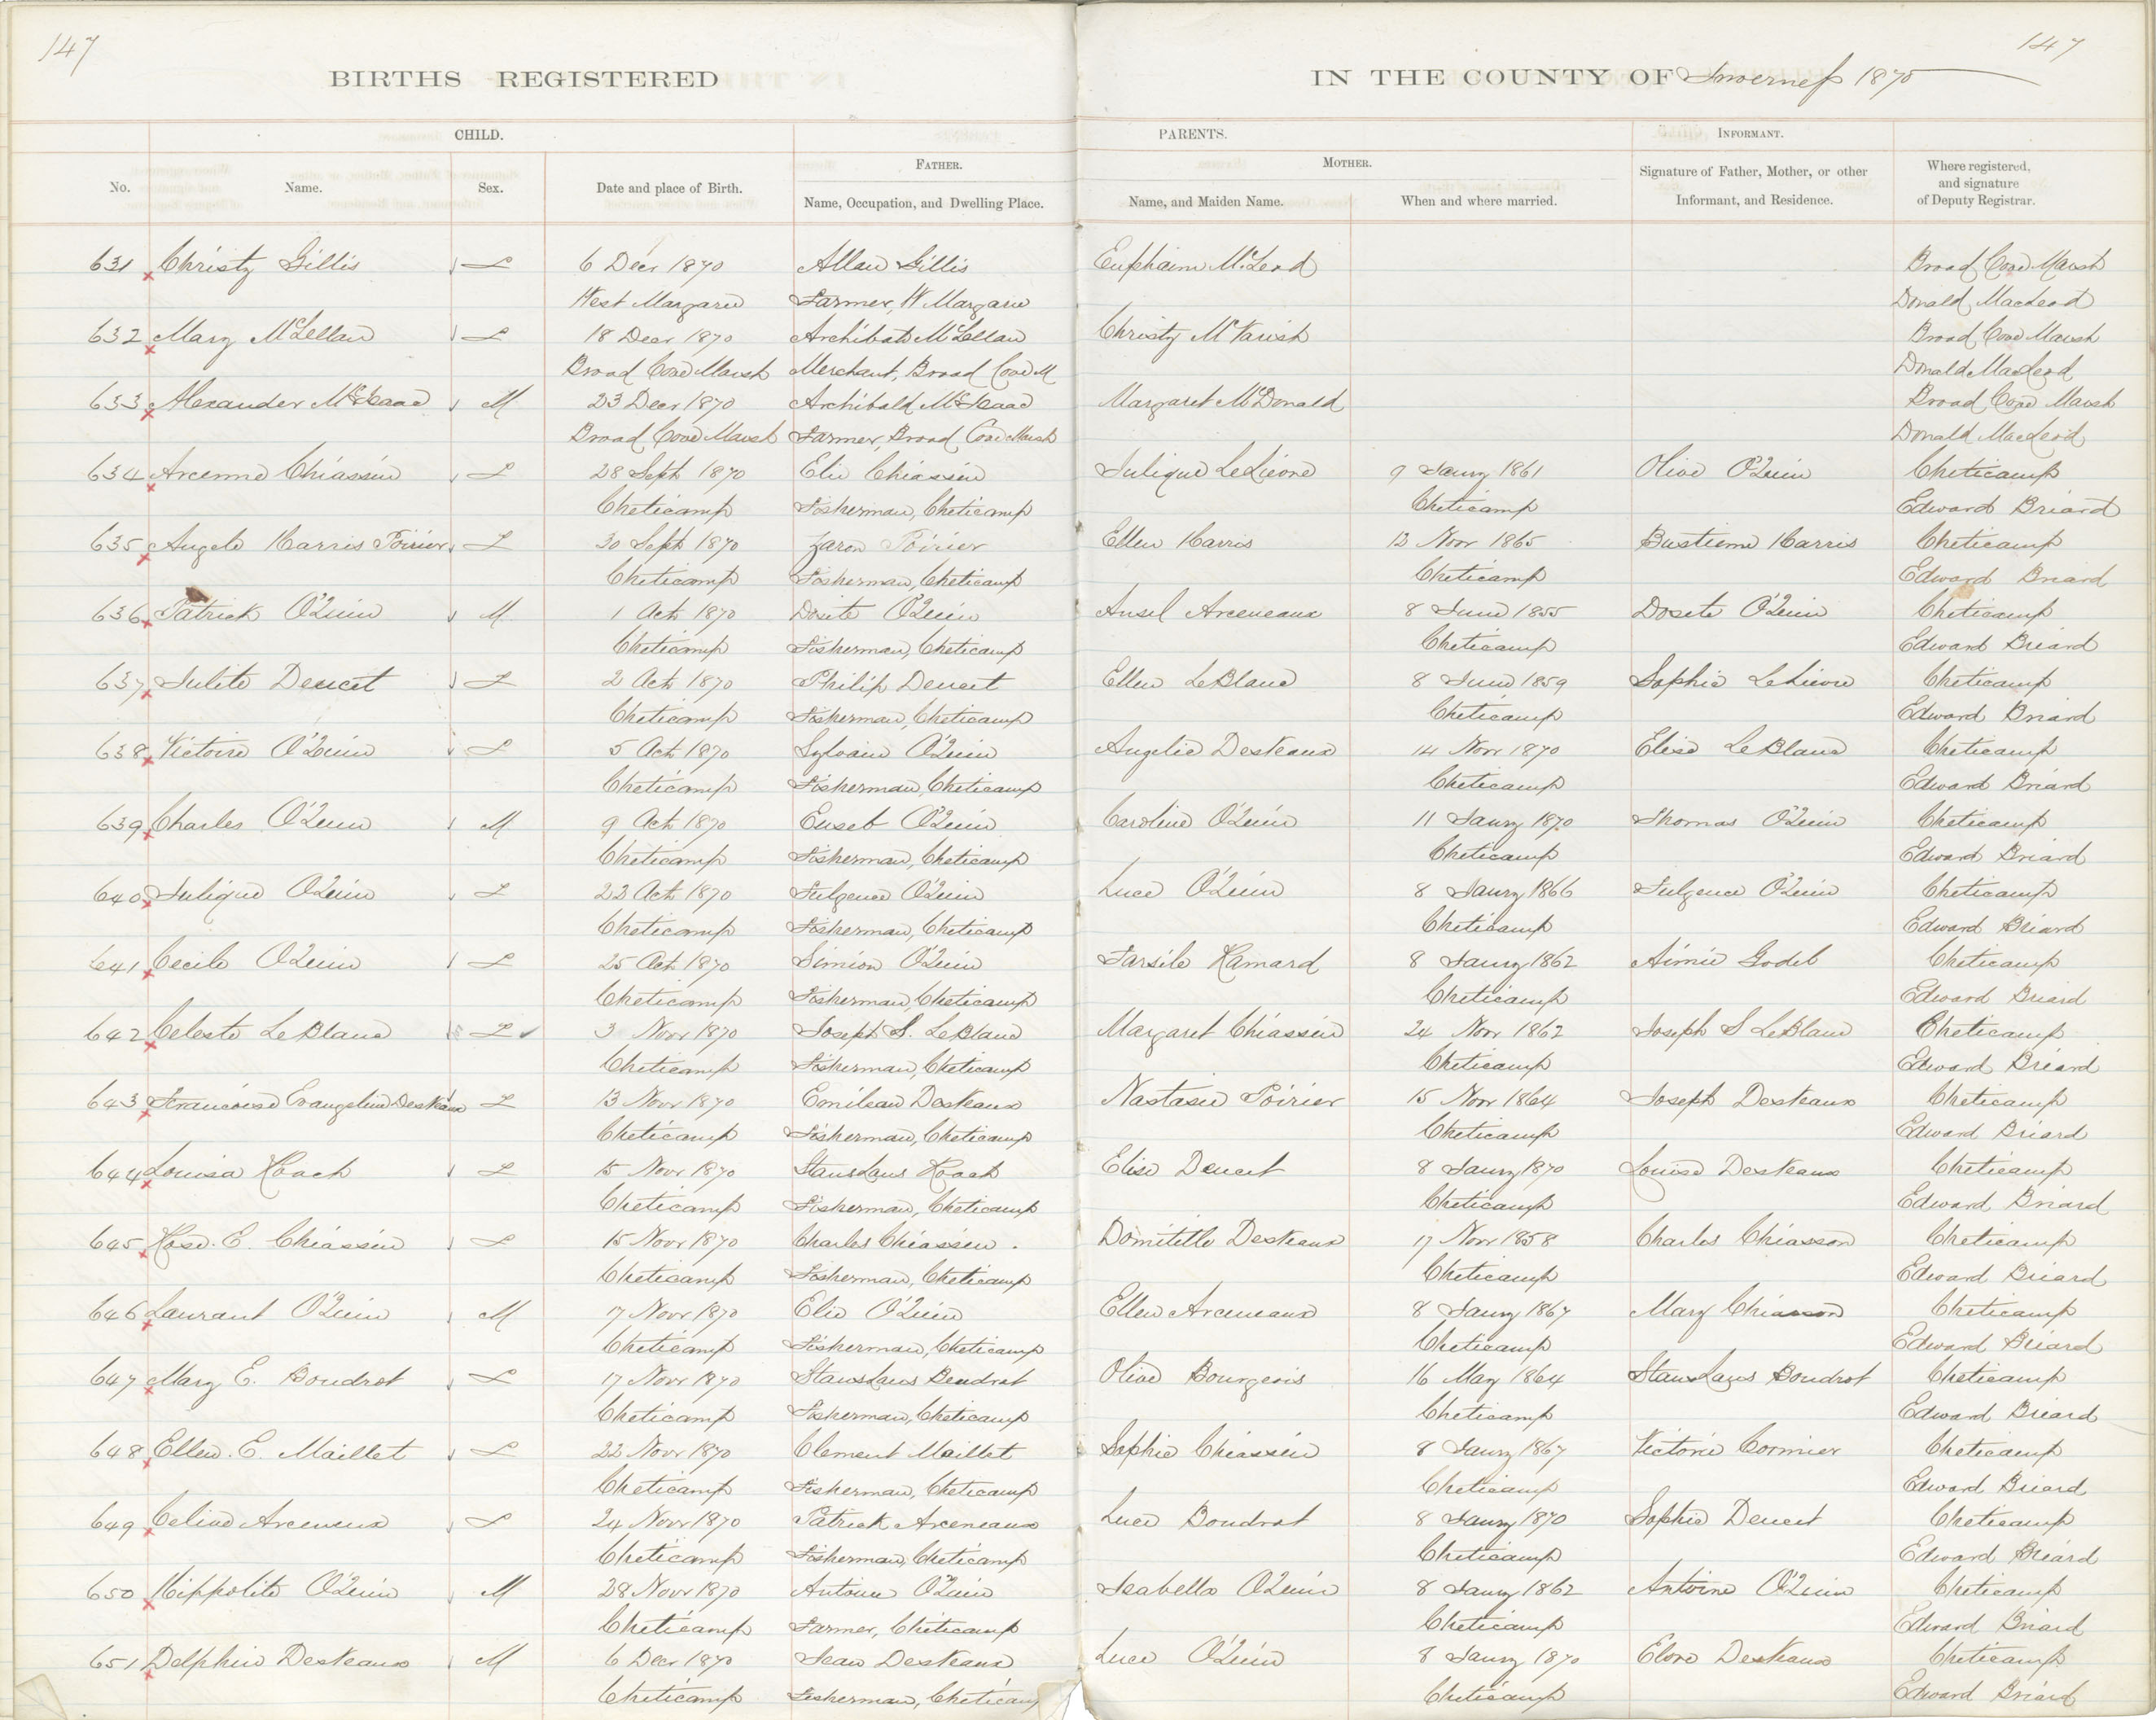 147
147
BIRTHS REGISTERED
IN THE COUNTY OF Inverness 1870
CHILD.
PARENTS.
INFORMANT.
FATHER.
MOTHER.
No.
Name.
Sex.
Date and place of Birth.
Name, Occupation, and Dwelling Place.
Name, and Maiden Name.
When and where married.
Signature of Father, Mother, or other
Informant, and Residence.
Where registered,
and signature
of Deputy Registrar.
631 Christy Gillis F 6 Decr 1870 Allan Gillis Euphaim McLeod Broad Cove Marsh
West Margaree Farmer, W Margaree Donald MacLeod
632 Mary McLellan F 18 Decr 1870 Archibald McLellan Christy McVarish Broad Cove Marsh
Broad Cove Marsh Merchant, Broad Cove M Donald MacLeod
633 Alexander McIsaac M 23 Decr 1870 Archibald McIsaac Margaret McDonald Broad Cove Marsh
Broad Cove Marsh Farmer, Broad Cove Marsh Donald MacLeod
634 Arcenne Chiassin F 28 Sept 1870 Elie Chiassin Julique LeLievre 9 Jany 1861 Olive O'Quin Cheticamp
Cheticamp Fisherman, Cheticamp Cheticamp Edward Briard
635 Angele Harris Poirier F 30 Sept 1870 Zaron Poirier Ellen Harris 12 Novr 1865 Bastienne Harris Cheticamp
Cheticamp Fisherman, Cheticamp Cheticamp Edward Briard
636 Patrick O'Quin M 1 Oct 1870 Dosite O'Quin Ansel Arceneaux 8 June 1855 Dosete O'Quin Cheticamp
Cheticamp Fisherman, Cheticamp Cheticamp Edward Briard
637 Julite Deucet F 2 Oct 1870 Philip Deucet Ellen LeBlanc 8 June 1859 Sophie LeLievre Cheticamp
Cheticamp Fisherman, Cheticamp Cheticamp Edward Briard
638 Victoire O'Quin F 5 Oct 1870 Sylvain O'Quin Angelie Desteaux 14 Novr 1870 Elise LeBlanc Cheticamp
Cheticamp Fisherman, Cheticamp Cheticamp Edward Briard
639 Charles O'Quin M 9 Oct 1870 Euseb O'Quin Caroline O'Quin 11 Jany 1870 Thomas O'Quin Cheticamp
Cheticamp Fisherman, Cheticamp Cheticamp Edward Briard
640 Julique O'Quin F 22 Oct 1870 Fulgence O'Quin Luce O'Quin 8 Jany 1866 Fulgence O'Quin Cheticamp
Cheticamp Fisherman, Cheticamp Cheticamp Edward Briard
641 Cecile O'Quin F 25 Oct 1870 Simion O'Quin Tarsile Hamard 8 Jany 1862 Aimie Godel Cheticamp
Cheticamp Fisherman, Cheticamp Cheticamp Edward Briard
642 Celeste LeBlanc F 3 Novr 1870 Joseph S. LeBlanc Margaret Chiassin 24 Novr 1862 Joseph S LeBlanc Cheticamp
Cheticamp Fisherman, Cheticamp Cheticamp Edward Briard
643 Francoise Evangeline Desteaux F 13 Novr 1870 Emilean Desteaux Nastasie Poirier 15 Novr 1864 Joseph Desteaux Cheticamp
Cheticamp Fisherman, Cheticamp Cheticamp Edward Briard
644 Louisa Roach F 15 Novr 1870 Stanslaus Roach Elise Deucet 8 Jany 1870 Louise Desteaux Cheticamp
Cheticamp Fisherman, Cheticamp Cheticamp Edward Briard
645 Rose. E. Chiassin F 15 Novr 1870 Charles Chiassin. Domitille Desteaux 17 Novr 1858 Charles Chiasson Cheticamp
Cheticamp Fisherman, Cheticamp Cheticamp Edward Briard
646 Laurant O'Quin M 17 Novr 1870 Elie O'Quin Ellen Arceneaux 8 Jany 1867 Mary Chiasson Cheticamp
Cheticamp Fisherman, Cheticamp Cheticamp Edward Briard
647 Mary E. Boudrot F 17 Novr 1870 Stanslaus Boudrot Olive Bourgeois 16 May 1864 Stanslaus Boudrot Cheticamp
Cheticamp Fisherman, Cheticamp Cheticamp Edward Briard
648 Ellen. E. Maillet F 22 Novr 1870 Clement Maillet Sophie Chiassin 8 Jany 1867 Victorie Cormier Cheticamp
Cheticamp Fisherman, Cheticamp Cheticamp Edward Briard
649 Celine Arceneux F 24 Novr 1870 Patrick Arceneaux Luce Boudrot 8 Jany 1870 Sophie Deucet Cheticamp
Cheticamp Fisherman, Cheticamp Cheticamp Edward Briard
650 Hippolite O'Quin M 28 Novr 1870 Antoine O'Quin Isabella O'Quin 8 Jany 1862 Antoine O'Quin Cheticamp
Cheticamp Farmer, Cheticamp Cheticamp Edward Briard
651 Delphin Desteaux M 6 Decr 1870 Jean Desteaux Luce O'Quin 8 Jany 1870 Elore Desteaux Cheticamp
Cheticamp Fisherman, Cheticamp Cheticamp Edward Briard